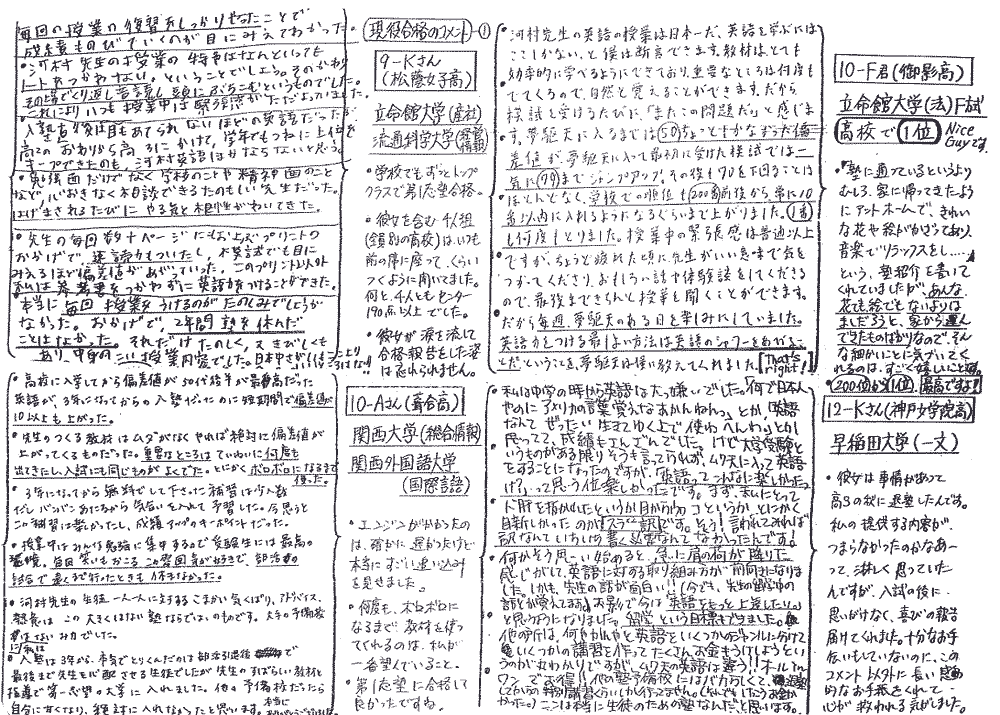 現役合格のコメント ①
毎回の授業の復習をしっかりやったことで
成績ものびていくのが目にみえてわかった
・河村先生の授業の特長はなんといっても
ノートをつかわない。ということでしょう。そのかわり
その場でくり返し音読し頭にぶちこむというものでした。
これによりいつも授業中は緊張感がただよっていました。
・入塾直後は目もあてられないほどの英語だったが
高2のおわりから高3にかけて、学年でもつねに上位を
キープできたのも、河村英語ほかならないと思う。
・勉強面だけでなく学校のことや精神面のこと
など、心おきなく相談できるたのもしい先生だった。
はげまされるたびにやる気と根性がわいてきた。
・先生の毎回数十ページにもおよぶプリントの
おかげで、速読力もついたし、模試でも目に
みえるほど偏差値があがっていった。このプリント以外
私は参考書をつかわずに英語力をつけることができた。
・本当に毎回授業をうけるのがたのしみでしょうが
なかった。おかげで、2年間塾を休んだ
ことはなかった。それだけたのしく、又きびしくも
あり、中身のこい授業内容でした。
9-Kさん
(松蔭女子高)
立命館大学(産社)
流通科学大学
・学校でもずっとトップ
クラスで第1志望合格。
・彼女を含む4人組
(全員別の高校)はいつも
前の席に座って、くらい
つくように聞いてました。
何と、4人ともセンター
190点以上でした。
・彼女が涙を流して
合格報告をした姿
は忘れられません。
河村先生の英語の授業は日本一だ、英語を学ぶには
ここしかない、と僕は断言できます。教材はとても
効率的に学べるようにできており、重要なところは何度も
でてくるので、自然と覚えることができます。だから
模試を受けるたびに、「またこの問題だ」と感じま
す。夢駆天に入るまでは50ちょっとしかなかった偏
差値が夢駆天に入って最初に受けた模試では一
気に79までジャンプアップ。その後も70を下ることは
ほとんどなく、学校での順位も200番前後から常に10
番以内に入れるようになるぐらいまで上がりました。1番
も何度もとりました。授業中の緊張感は普通以上
ですが、ちょうど疲れた頃に先生がいい意味で気を
つかってくださり、おもしろい話や体験談をしてくださる
ので、最後まできちんと授業を聞くことができます。
だから毎週、夢駆天のある日を楽しみにしていました。
英語力をつける最も良い方法は英語のシャワーをあびるこ
とだということを、夢駆天は僕に教えてくれました。 That's right!
10-F君(御影高)
立命館大学(法)F試
高校で1位 Nice Guyです。
・塾に通っているというより
むしろ、家に帰ってきたよう
にアットホームで、きれい
な花や絵がかざってあり、
音楽でリラックスをし……
という、塾紹介を書いて
くれていましたが、あんな
花でも絵でもないよりは
ましだろうと、家から運ん
できたものばかりなので、そん
な細かいことに気づいてく
れるのは、すごく嬉しいこと
・200位から1位、最高ですネ!
・高校に入学してから偏差値が50代後半が最高だった
英語が、3年になってからの入塾だったのに短期間で偏差値が
10以上も上がった。
・先生のつくる教材はムダがなくやれば絶対に偏差値が
上がってくるものだった。重要なところはていねいに何度も
出てきたし、入試にも同じものがよくでた。とにかくボロボロになるまで
使った。
・3年になってから無料でして下さった補習は少人数
だしバンバンあたるから気合いを入れて予習した。今思うと
この補習は良かったし、成績UPのキーポイントだった。
・授業中はみんな勉強に集中するので受験生には最高の
環境。毎回笑いもおこる。この雰囲気が好きで、部活の
試合で遠くまで行ったときも休まなかった。
・河村先生の生徒一人一人に対するこまかい気くばり、アドバイス、
熱意はこの大きくはない塾ならではのものです。大手の予備校
ではない魅力でした。
・入塾は3年から、本気でとりくんだのは部活引退後
最後まで先生を心配させる生徒でしたが先生のすばらしい教材と
指導で第一志望の大学に入れました。他の予備校だったら
10-Aさん(葺合高)
関西大学(総合情報)
関西外国語大学
(国際言語)
・エンジンがかかったの
は、確かに遅かったけど
本当にすごい追い込み
を見せました。
・何度も、ボロボロに
なるまで教材を使っ
てくれるのは、私が
一番望んでいること。
・第1志望に合格して
良かったですね。
・私は中学の時から英語は大っ嫌いでした。「何で日本人
やのにアメリカの言葉習うなあかんねん。」とか「英語
なんてぜったい生きてゆく上で使わへんわ」とか
思ってて、成績もさんざんでした。けど大学受験と
いうものがある限りそうも言ってられず、ムク天に入って英語
をすることになったのですが、「英語ってこんなに楽しかったっ
け?」って思う位楽しかったです。まず、私にとって
ド肝を抜かれたというか目からウロコというか、とにかく
目新しかったのが「スラ訳」です。そう!言われてみれば
訳なんていちいち書く必要なんてなかったんです。
何かそう思い始めると、急に肩の荷が降りた
感じがして、英語に対する取り組み方が前向きになりま
した。しかも、先生の話が面白い!!
英語をもっと上達したい。
と思うようになりました。留学という目標もできました。
他の所は、何やかんやと英語をいくつかのジャンルに分けて
いくつかの講習を作ってたくさんお金もうけしようとい
うのが丸わかりですが、ムク天の英語は違う!!オールイン
ワンでお得!!
ここは本当に生徒のための塾なんだと思います。
12-Kさん(神戸女学院高)
早稲田大学(一文)
・彼女は事情があって
高3の秋に退塾したんです。
私の提供する内容が、
つまらなかったのかなあー
って、淋しく思っていた
んですが、入試の後に
思いがけなく、喜びの報告
届けてくれました。十分なお手
伝いもしていないのに、この
コメント以外に長い感動
的なお手紙もくれて…
心が救われる気がしました。